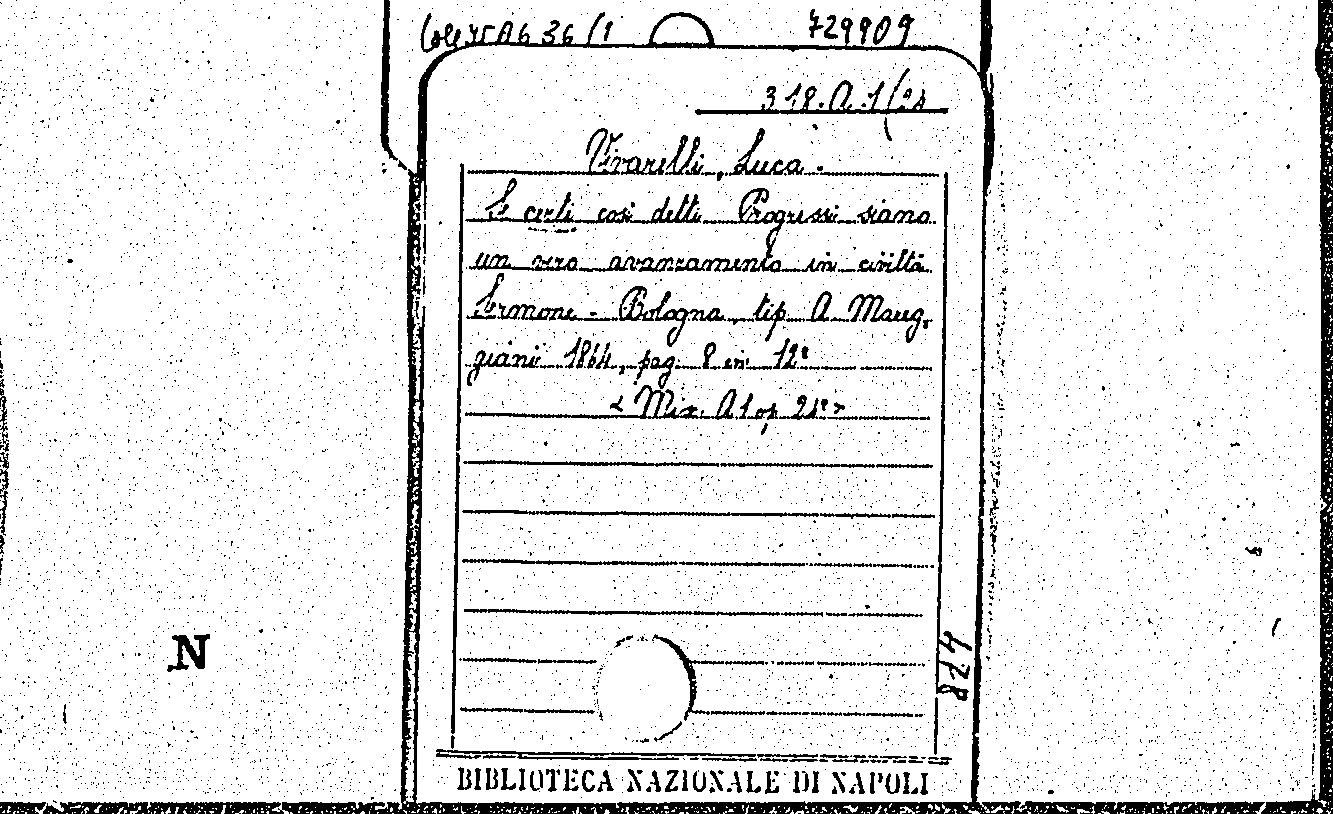 729909
318.A.1/21
Vivarelli, Luca.
Se certi così detti Progressi siano
un vero avanzamento in civiltà
Sermone - Bologna, tip. A Mareg,
giani 1864, pag. 8 in 12°
<Mix. A1 op. 21°>
824
N
BIBLIOTECA NAZIONALE DI NAPOLI